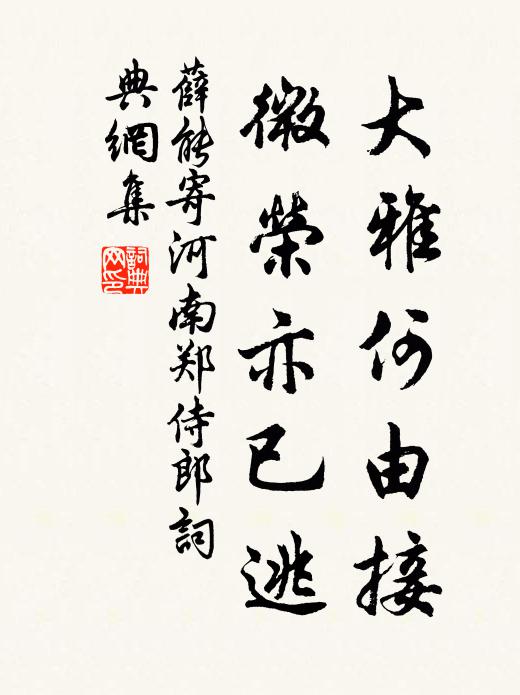 大雅何由接
微榮亦已逃
薛能寄河南郑侍郎詞
典網集
詞典网印